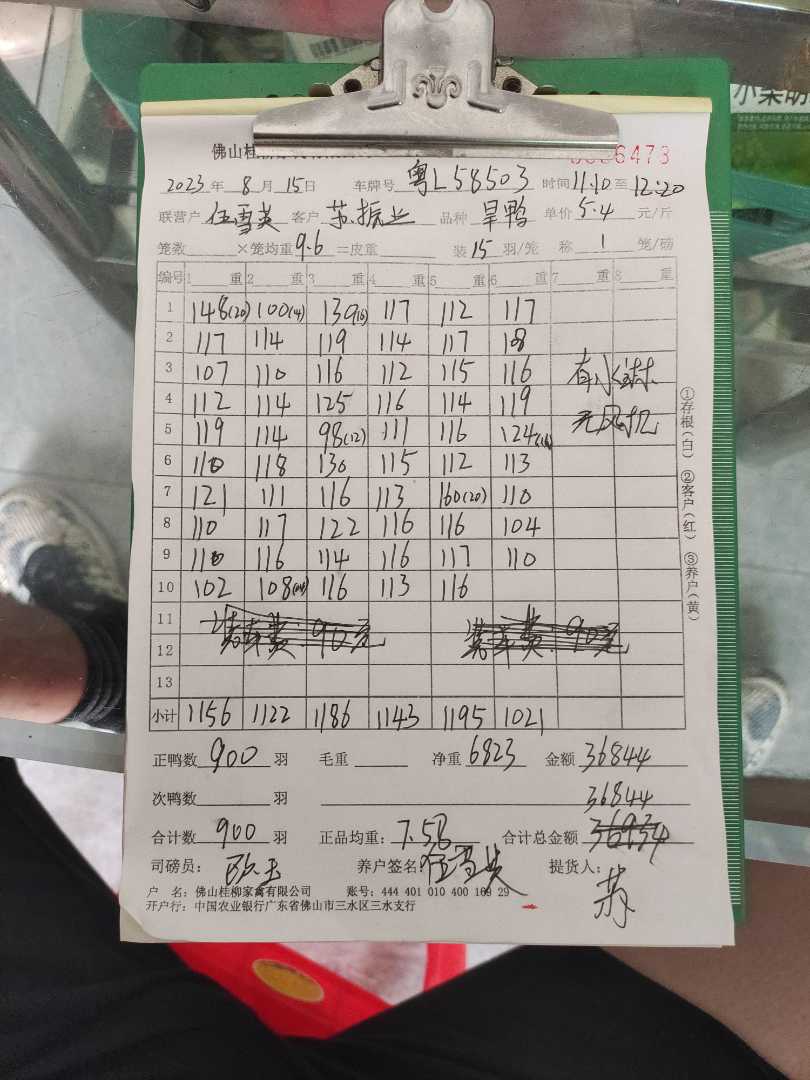 佛山桂
6473
2023年8月15日 车牌号 粤L58503 时间11:10至12:20
联营户 伍雪英 客户 苏振业 品种 旱鸭 单价5.4元/斤
笼数 ×笼均重9.6=皮重 装15羽/笼 称1笼/磅
编号 1 重 2 重 3 重 4 重 5 重 6 重 7 重 8 重
1 148(20) 100(14) 139(16) 117 112 117
2 117 114 119 114 117 118
3 107 110 116 112 115 116 有水
4 112 114 125 116 114 119 无风机
5 119 114 98(12) 111 116 124(16)
6 110 118 130 115 112 113
7 121 111 116 113 160(20) 110
8 110 117 122 116 116 104
9 110 116 114 116 117 110
10 102 108(14) 116 113 116
11
12
13
小计 1156 1122 1186 1143 1195 1021
正鸭数900羽 毛重 净重6823 金额36844
次鸭数 羽 36844
合计数900羽 正品均重:7.58 合计总金额 36934
司磅员: 养户签名:伍雪英 提货人:
户 名:佛山桂柳家禽有限公司 账号:444 401 010 400 169 29
开户行:中国农业银行广东省佛山市三水区三水支行
①存根(白) ②客户(红) ③养户(黄)
小菜